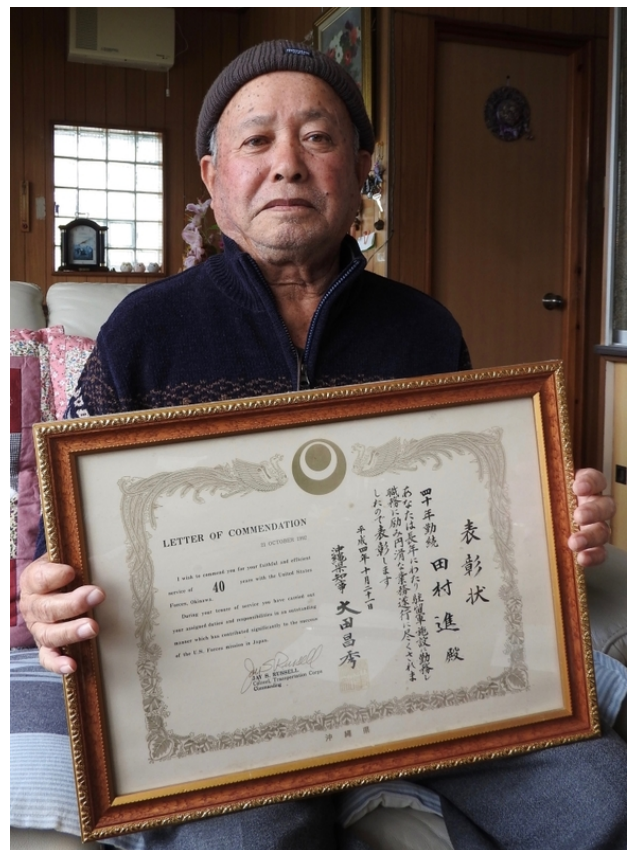 LETTER OF COMMENDATION
21 OCTOBER 1992
I wish to commend you for your faithful and efficient
service of 40 years with the United States
Forces, Okinawa.
During your tenure of service you have carried out
your assigned duties and responsibilities in an outstanding
manner which has contributed significantly to the success
of the U.S. Forces mission in Japan.
JAY S. RUSSELL
Colonel, Transportation Corps
Commanding
表彰状
四十年勤続 田村進殿
あなたは長年にわたり駐留軍施設に勤務し
職務に励み円滑な業務遂行に尽くされま
したので表彰します
平成四年十月二十一日
沖縄県知事 大田昌秀
沖縄県